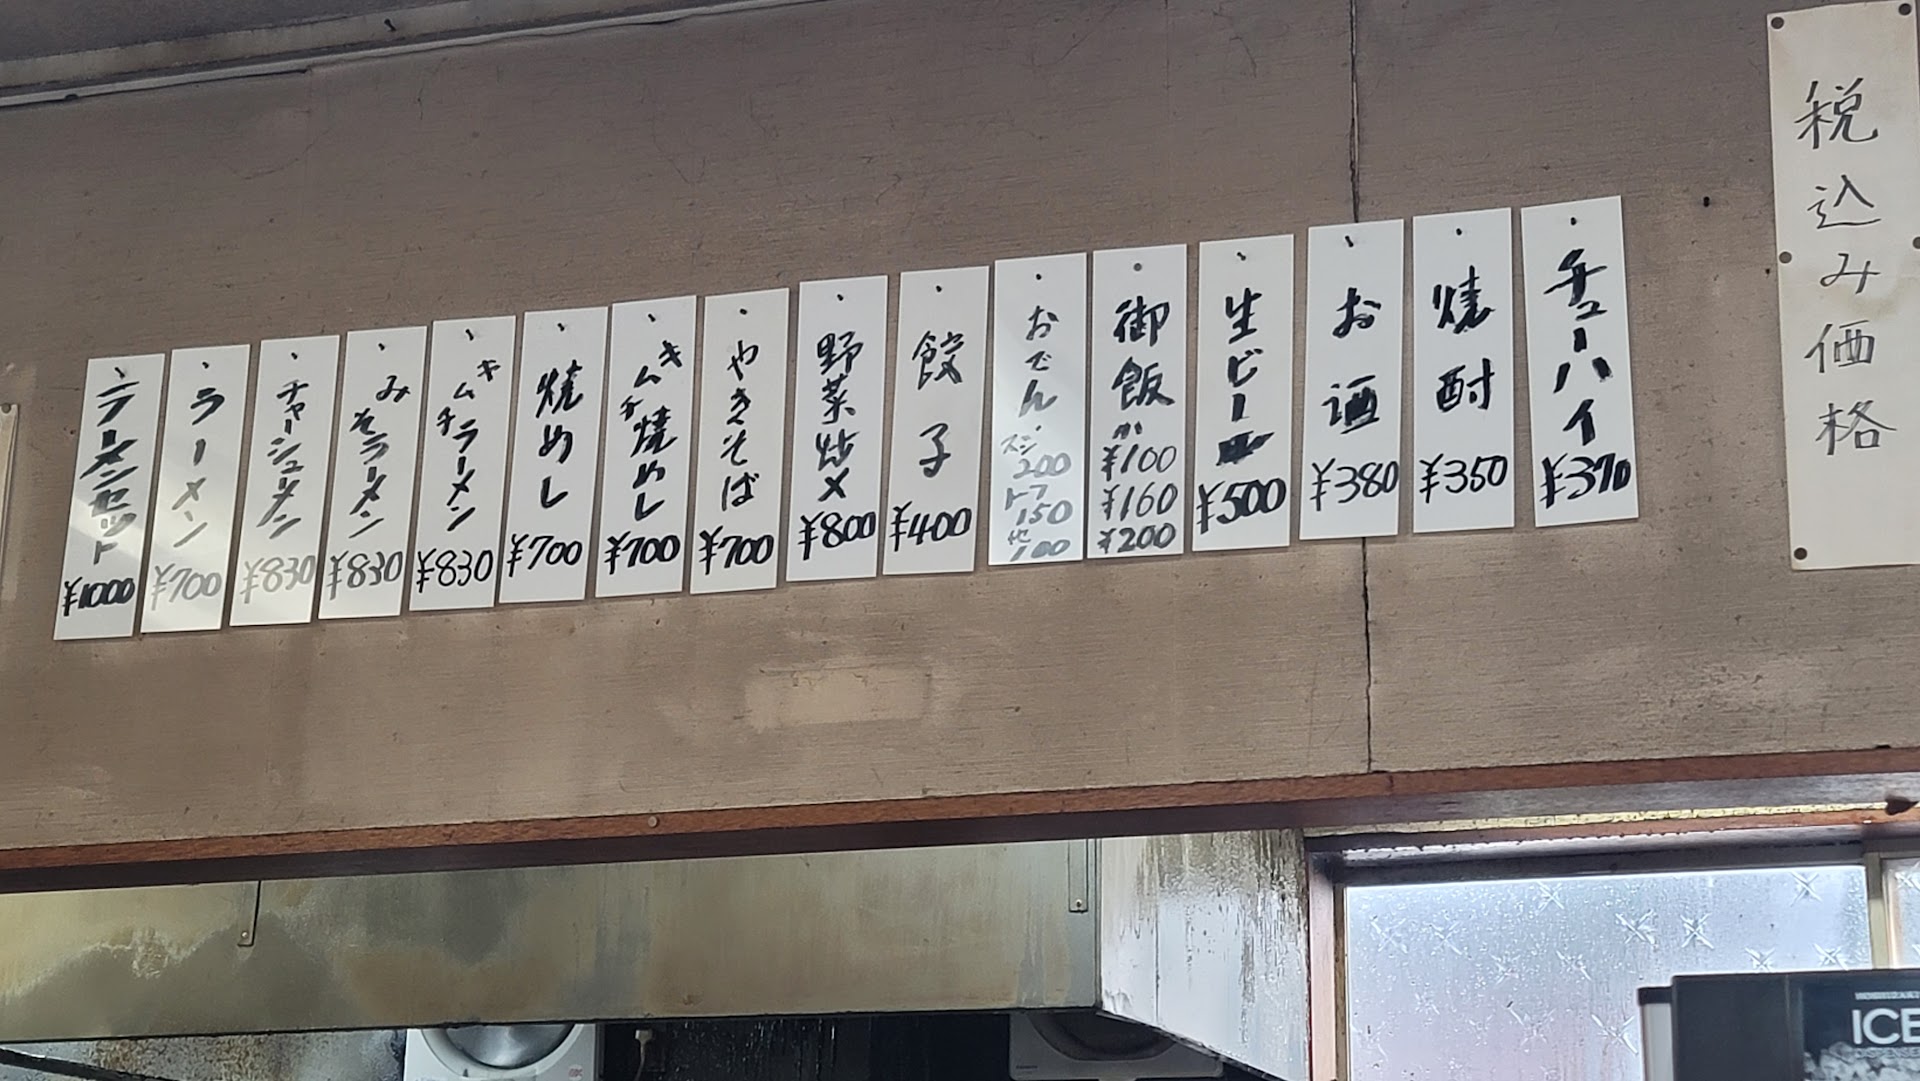 税込み価格
チューハイ
¥370
焼酎
¥350
お酒
¥380
生ビー
¥500
御飯
¥100
¥160
¥200
おでん
スジ
200
トフ
150
他
100
餃子
¥400
野菜炒メ
¥800
やきそば
¥700
キムチ焼めし
¥700
焼めし
¥700
キムチラーメン
¥830
みそラーメン
¥830
チャーシューメン
¥830
ラーメン
¥700
ラーメンセット
¥1000
HOSHIZAKI
ICE